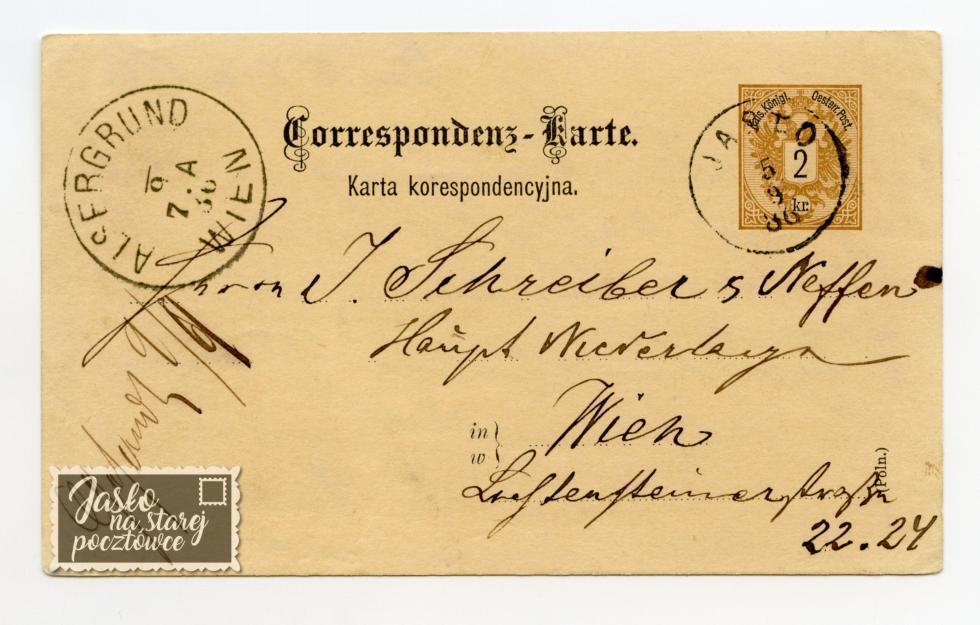 Correspondenz-Karte.
Karta korespondencyjna.
Kais. Königl. Oesterr. Post.
2
kr.
JASŁO
5
9
86
ALSERGRUND
7.A
86
WIEN
Herrn J. Schreiber & Neffen
Haupt Niederlage
in
w
Wien
Liechtensteinerstrasse
22.24
(Poln.)
9/9
Jasło
na starej
pocztówce